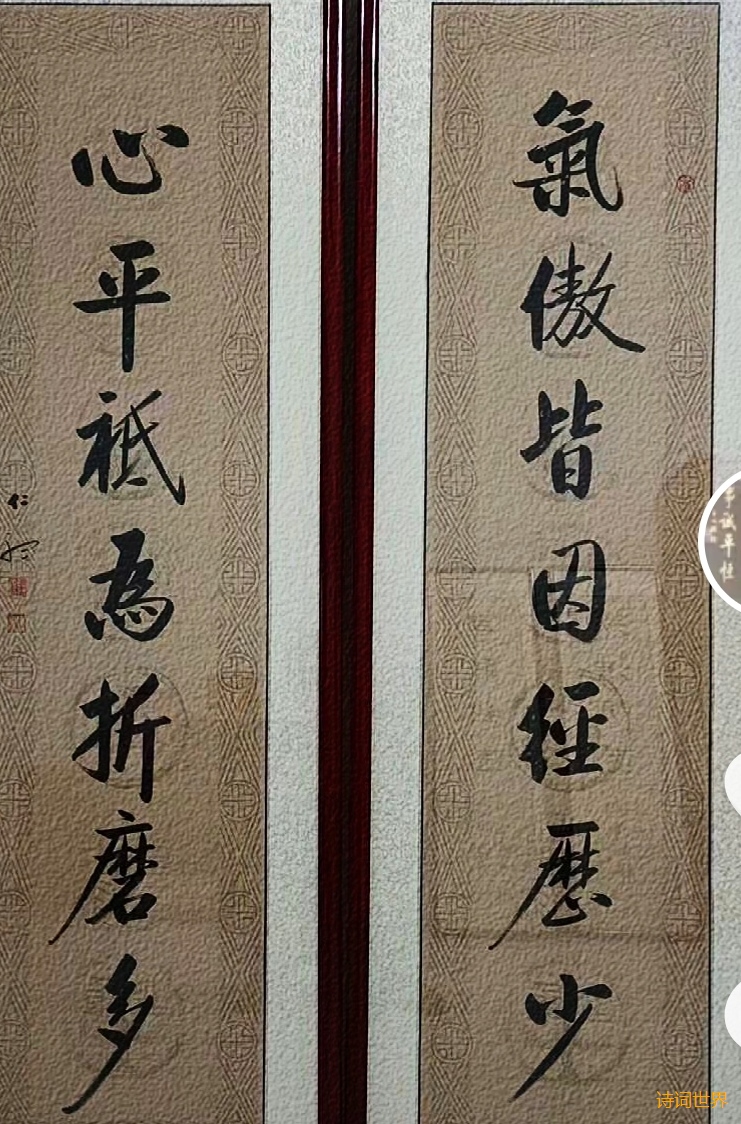 氣傲皆因經歷少
心平祇為折磨多
仁
诗词世界